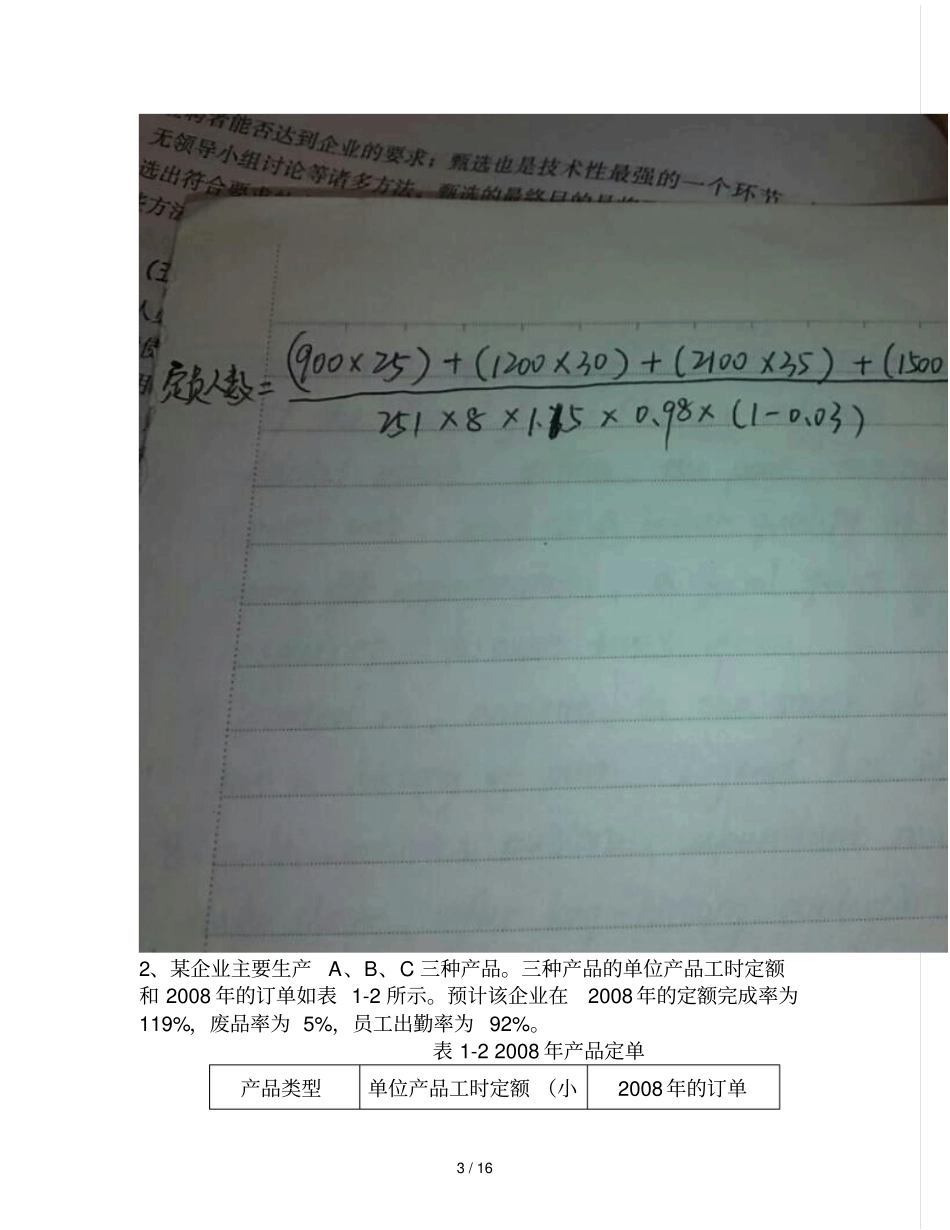 者能否达到企业的要求；甄选也是技术性最强的一个环节
无领导小组讨论等诸多方法，甄选的最终目的是
选出符合要求
方法
定员人数= (900×25)+(1200×30)+(2100×35)+(1500
251×8×1.15×0.98×(1-0.03)
2、某企业主要生产 A、B、C 三种产品。三种产品的单位产品工时定额
和 2008 年的订单如表 1-2 所示。预计该企业在 2008 年的定额完成率为
119%，废品率为 5%，员工出勤率为 92%。
表 1-2 2008 年产品定单
产品类型 单位产品工时定额 （小 2008 年的订单
3 / 16